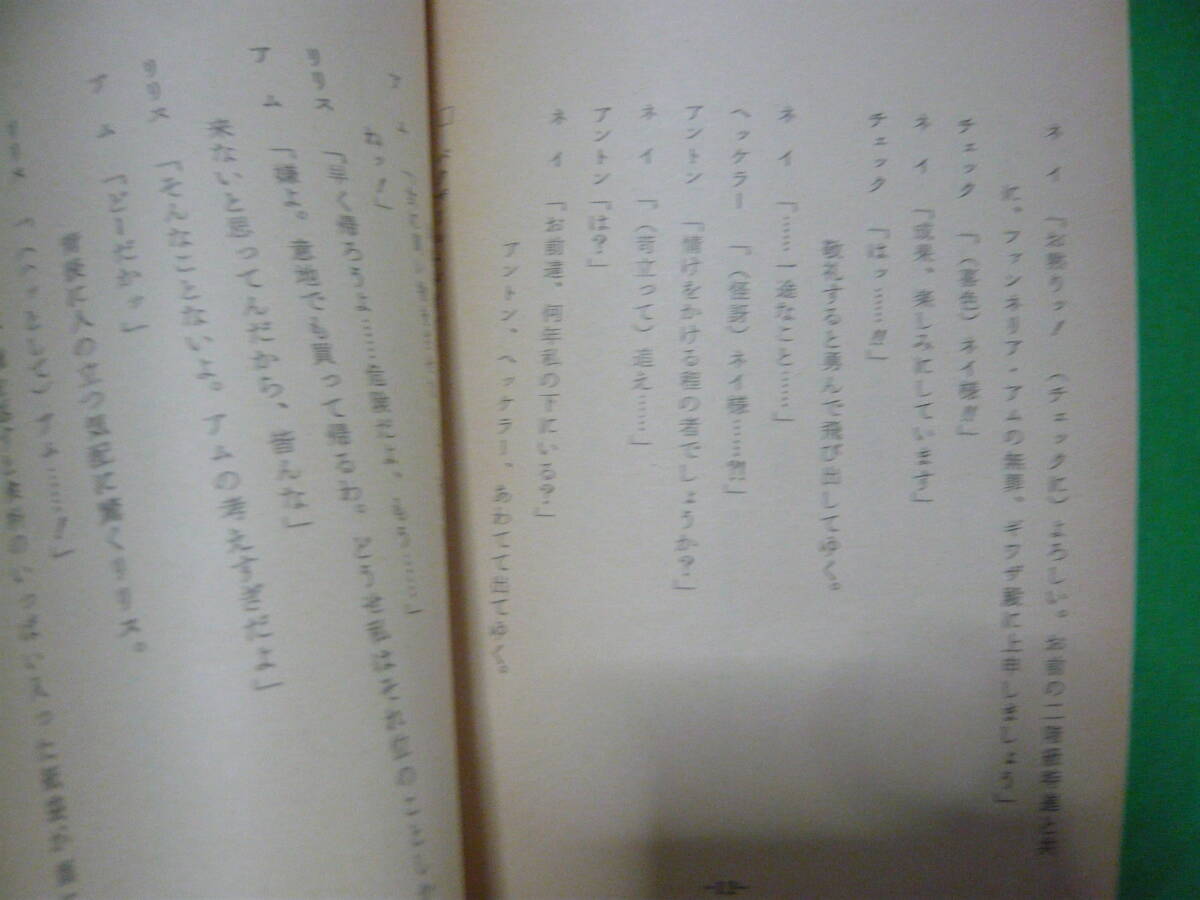 ネイ「お黙りっ！ （チェックに）よろしい。お前の二階級特進と共
に、ファンネリア・アムの無罪、ギワザ殿に上申しましょう」
チェック「（喜色）ネイ様!!」
ネイ「成果、楽しみにしています」
チェック「はっ……!!」
敬礼すると勇んで飛び出してゆく。
ネイ「……一途なこと……」
ヘッケラー「（怪訝）ネイ様……?!」
アントン「情けをかける程の者でしょうか？」
ネイ「（苛立って）追え……」
アントン「は？」
ネイ「お前達、何年私の下にいる？」
アントン、ヘッケラー、あわてて出てゆく。
アム
ねっ！」
リリス「早く帰ろうよ……危険だよ。
アム「嫌よ。意地でも買って帰るわ。どうせ私はそれ位のことしか
来ないと思ってんだから、皆んな」
リリス「そんなことないよ。アムの考えすぎだよ」
アム「どーだかッ」
背後に人の立つ気配に驚くリリス。
リリス「（ハッとして）アム……！」
のいっぱい入った紙袋が